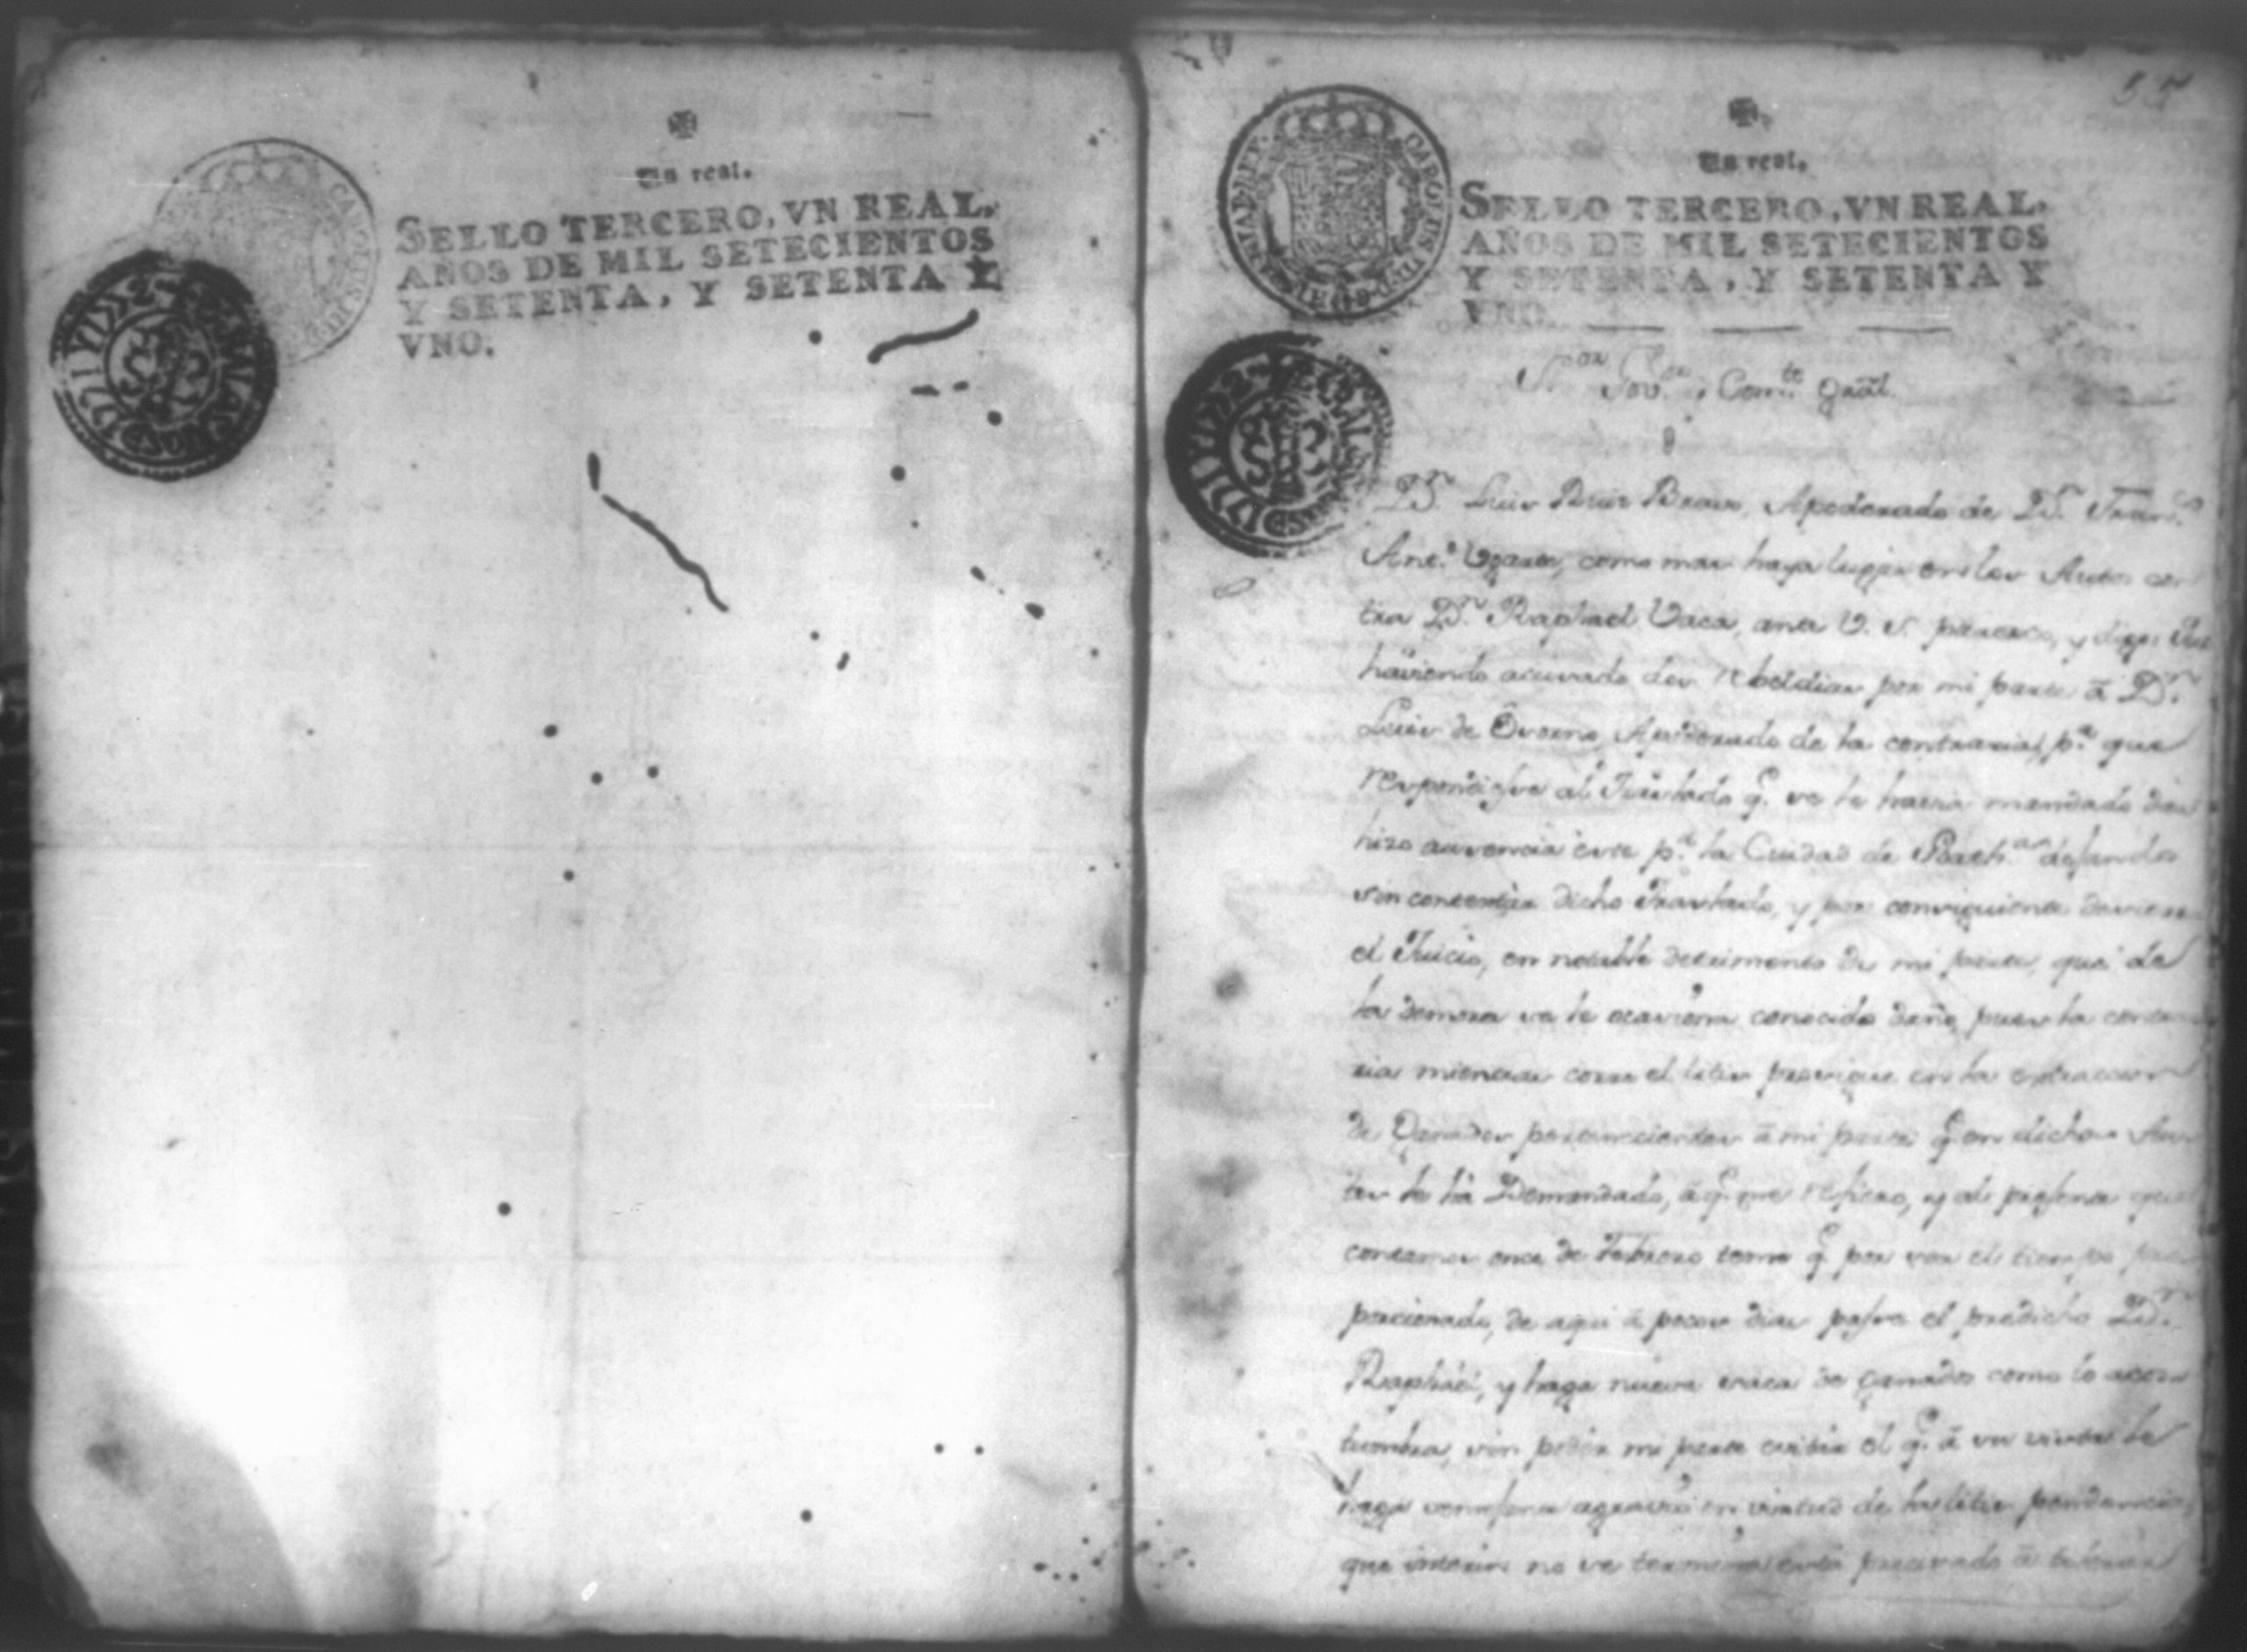 Un real.
SELLO TERCERO, VN REAL,
AÑOS DE MIL SETECIENTOS
Y SETENTA, Y SETENTA Y
VNO.
1771 Y 1772
Un real.
SELLO TERCERO, VN REAL,
AÑOS DE MIL SETECIENTOS
Y SETENTA, Y SETENTA Y
VNO.
CAROLUS III D G
1771 Y 1772
S.or Gov.or y Com.te Gräl.
D.n Luis Ruiz Bravo, Apoderado de D.n Fran.co
Ant.o Ugarte, como mas haya lugar en los Autos con
tra D.n Raphael Vaca, ante V. S. paresco, y digo: Que
haviendo acusado dos rebeldias por mi parte â D.n
Luis de Apoderado de la contraria, p.a que
respondiesse al Traslado q.e se le havia mandado dar
hizo ausencia este p.a la Ciudad de dejando
sin contestar dicho Traslado, y por consiguiente
el Juicio, en notable detrimento de mi parte, que de
la demora se le ocasiona conocido daño, pues la contra
ria mientras corre el litis prosigue en la extraccion
de Ganados pertenecientes â mi parte q.e en dichos Au
tos le hà Demandado, â q.e me refiero, y al presente que
contamos once de Febrero teme q.e por ser el tiempo pro
porcionado, de aqui â pocos dias passe el predicho D.n
Raphael, y haga nueva saca de ganados como lo acos
tumbra, sin poder mi parte evitar el q.e â su vista le
haga semejante agravio en virtud de la litis pendencia,
que interin no se termina està precisado â tolerar